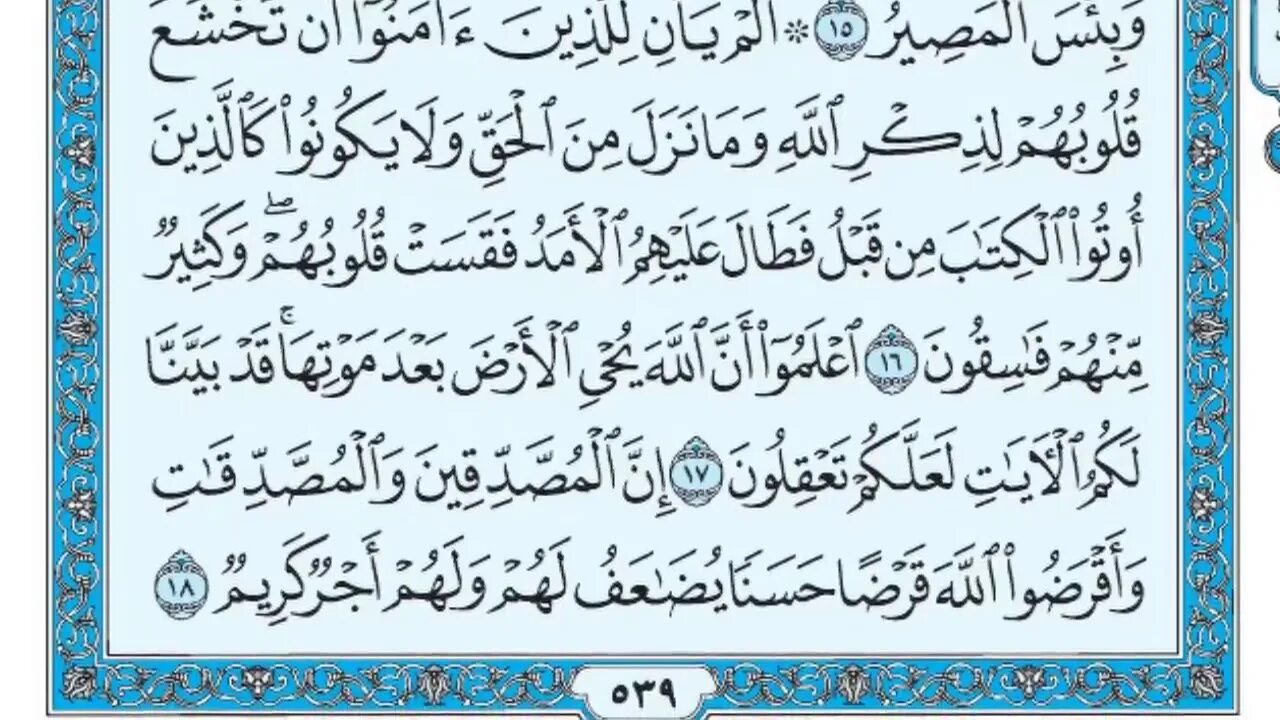 وَبِئۡسَ ٱلۡمَصِيرُ ١٥ ۞ أَلَمۡ يَأۡنِ لِلَّذِينَ ءَامَنُوٓاْ أَن تَخۡشَعَ
قُلُوبُهُمۡ لِذِكۡرِ ٱللَّهِ وَمَا نَزَلَ مِنَ ٱلۡحَقِّ وَلَا يَكُونُواْ كَٱلَّذِينَ
أُوتُواْ ٱلۡكِتَٰبَ مِن قَبۡلُ فَطَالَ عَلَيۡهِمُ ٱلۡأَمَدُ فَقَسَتۡ قُلُوبُهُمۡۖ وَكَثِيرٞ
مِّنۡهُمۡ فَٰسِقُونَ ١٦ ٱعۡلَمُوٓاْ أَنَّ ٱللَّهَ يُحۡيِ ٱلۡأَرۡضَ بَعۡدَ مَوۡتِهَاۚ قَدۡ بَيَّنَّا
لَكُمُ ٱلۡأٓيَٰتِ لَعَلَّكُمۡ تَعۡقِلُونَ ١٧ إِنَّ ٱلۡمُصَّدِّقِينَ وَٱلۡمُصَّدِّقَٰتِ
وَأَقۡرَضُواْ ٱللَّهَ قَرۡضًا حَسَنٗا يُضَٰعَفُ لَهُمۡ وَلَهُمۡ أَجۡرٞ كَرِيمٞ ١٨
٥٣٩